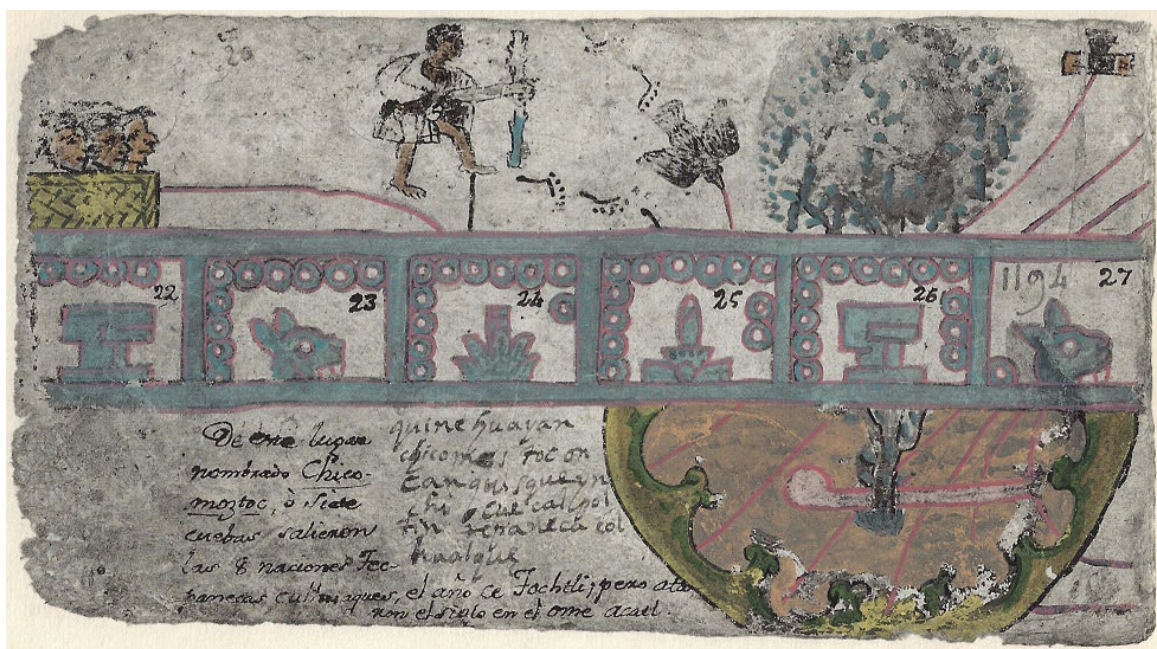 20
22
23
24
25
26
1194
27
De este lugar
nombrado Chico-
moztoc, ò siete
cuebas salieron
las 8 naciones Tec-
panecas culhuaques, el año ce Tochtli; pero ata
ron el siglo en el ome acatl.
quinehuayan
chicomos toc on
can quisque yn
chi cue calpol
tin tepaneca col
hualque